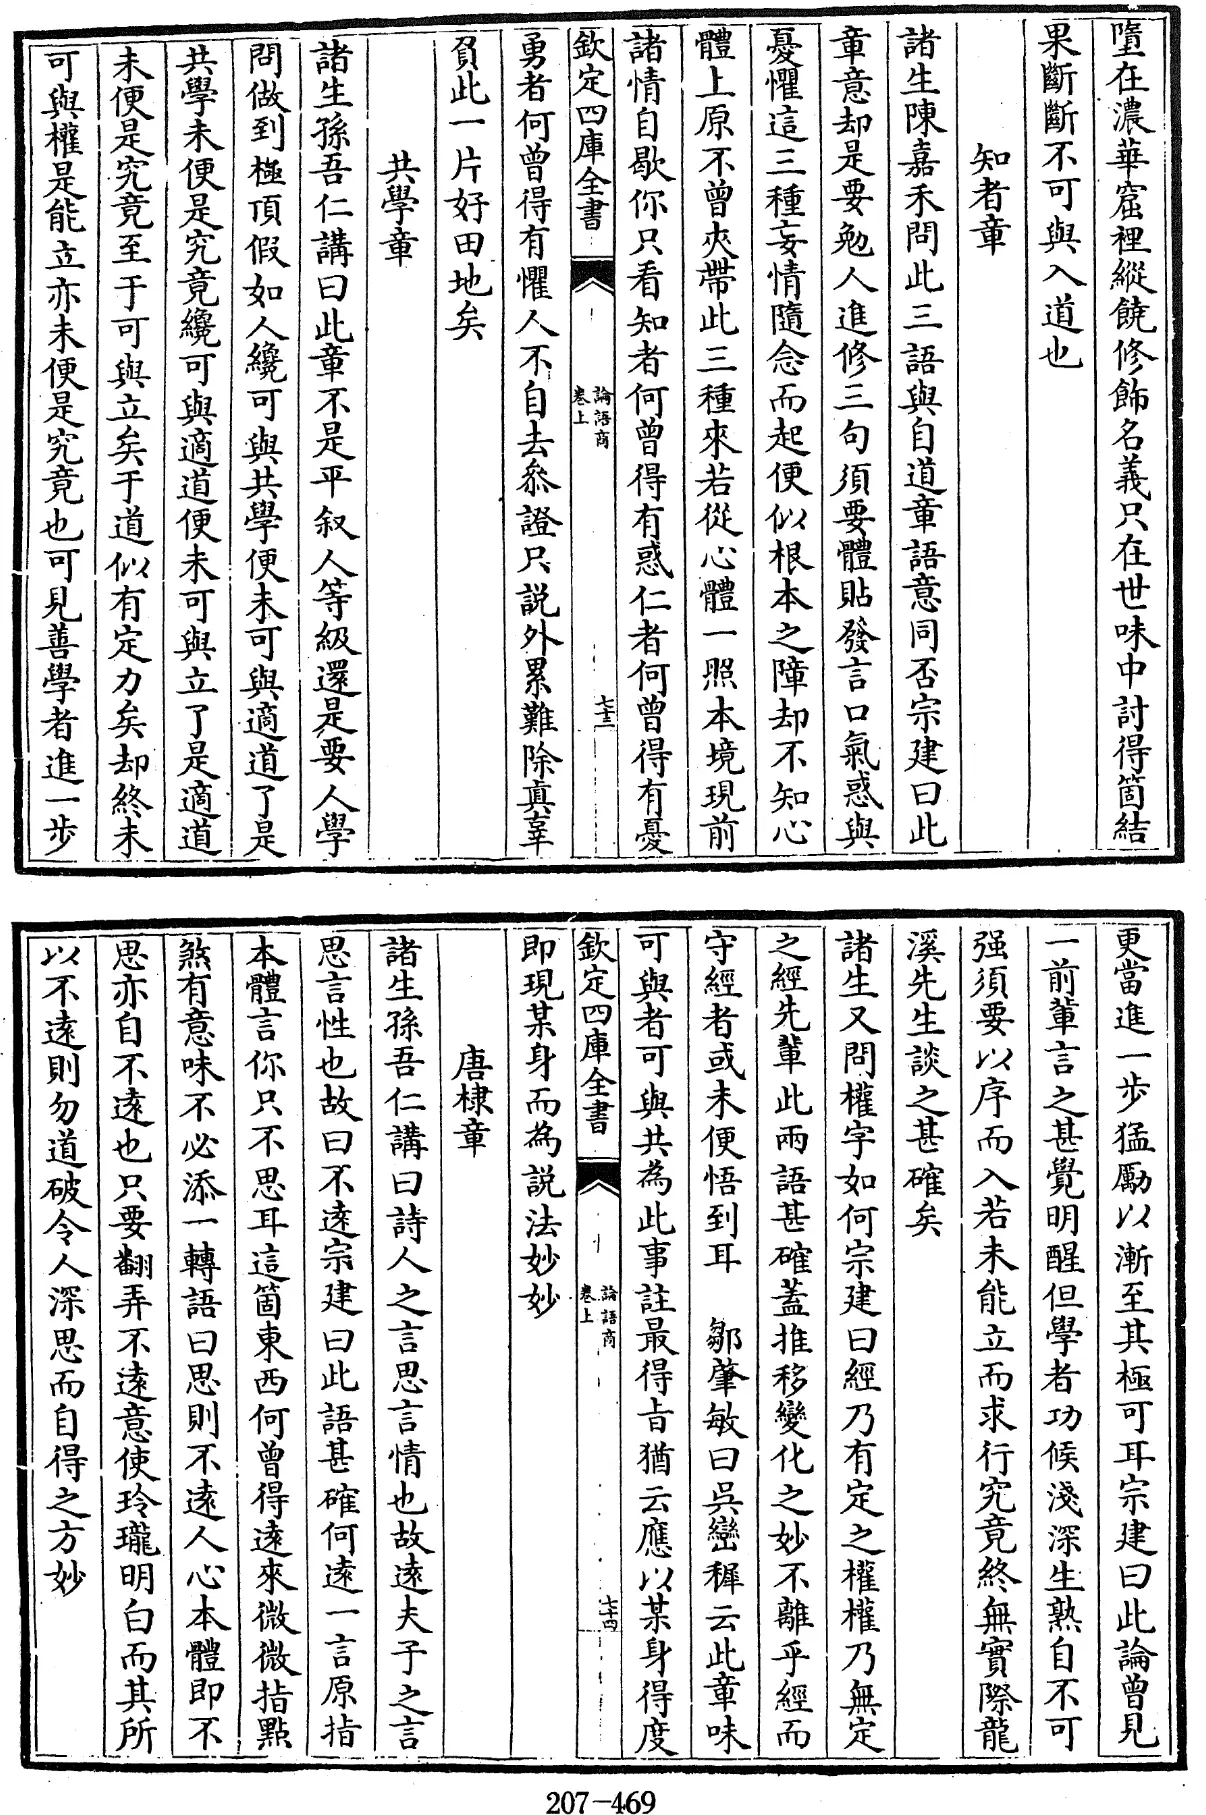 墮在濃華窟裡縱饒修飾名義只在世味中討得箇結
果斷斷不可與入道也
知者章
諸生陳嘉禾問此三語與自道章語意同否宗建曰此
章意却是要勉人進修三句須要體貼發言口氣惑與
憂懼這三種妄情隨念而起便似根本之障却不知心
體上原不曾夾帶此三種來若從心體一照本境現前
諸情自歇你只看知者何曾得有惑仁者何曾得有憂
欽定四庫全書
論語商
卷上
七十三
勇者何曾得有懼人不自去叅證只説外累難除真辜
負此一片好田地矣
共學章
諸生孫吾仁講曰此章不是平叙人等級還是要人學
問做到極頂假如人纔可與共學便未可與適道了是
共學未便是究竟纔可與適道便未可與立了是適道
未便是究竟至于可與立矣于道似有定力矣却終未
可與權是能立亦未便是究竟也可見善學者進一步
更當進一步猛勵以漸至其極可耳宗建曰此論曾見
一前輩言之甚覺明醒但學者功候淺深生熟自不可
强須要以序而入若未能立而求行究竟終無實際龍
溪先生談之甚確矣
諸生又問權字如何宗建曰經乃有定之權權乃無定
之經先輩此兩語甚確蓋推移變化之妙不離乎經而
守經者或未便悟到耳　鄒肇敏曰吳巒穉云此章味
可與者可與共為此事註最得旨猶云應以某身得度
欽定四庫全書
論語商
卷上
七十四
即現某身而為説法妙妙
唐棣章
諸生孫吾仁講曰詩人之言思言情也故遠夫子之言
思言性也故曰不遠宗建曰此語甚確何遠一言原指
本體言你只不思耳這箇東西何曾得遠來微微指點
煞有意味不必添一轉語曰思則不遠人心本體即不
思亦自不遠也只要翻弄不遠意使玲瓏明白而其所
以不遠則勿道破令人深思而自得之方妙
207-469